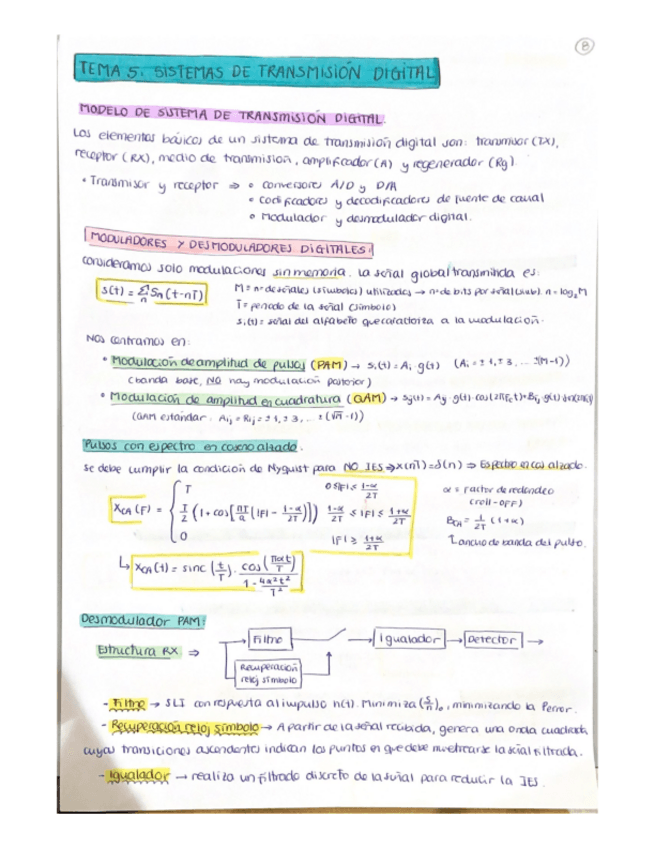 8
TEMA 5. SISTEMAS DE TRANSMISIÓN DIGITAL
MODELO DE SISTEMA DE TRANSMISIÓN DIGITAL.
Los elementos básicos de un sistema de transmisión digital son: transmisor (TX),
receptor (RX), medio de transmisión, amplificador (A) y regenerador (Rg)
• Transmisor y receptor ⇒ o conversores A/D y D/A
o codificadores y decodificadores de fuente de canal
o Modulador y desmodulador digital.
MODULADORES Y DESMODULADORES DIGITALES:
consideramos solo modulaciones sin memoria. La señal global transmitida es:
s(t) = Σn Sn(t-nT)
M = nº de señales (símbolos) utilizados → nº de bits por señal (símb). n = log2 M
T = periodo de la señal (símbolo)
si(t) = señal del alfabeto que caracteriza a la modulación.
Nos centramos en:
• Modulación de amplitud de pulsos (PAM) → si(t) = Ai · g(t) (Ai = ±1, ±3, ... ±(M-1))
(banda base, NO hay modulación posterior)
• Modulación de amplitud en cuadratura (QAM) → sij(t) = Aij · g(t) · cos(2πFct) + Bij · g(t)
(QAM estándar. Aij = Bij = ±1, ±3, ... ±(√M -1))
Pulsos con espectro en coseno alzado.
Se debe cumplir la condición de Nyquist para NO IES ⇒ x(nT) = δ(n) ⇒ Espectro en cos alzado.
XCA(F) = { T 0≤|F|≤ 1-α/2T
T/2 (1+cos[πT/α (|F| - 1-α/2T)]) 1-α/2T ≤ |F| ≤ 1+α/2T
0 |F| ≥ 1+α/2T
α = Factor de redondeo
(roll-OFF)
BCA = 1/2T (1+α)
↳ ancho de banda del pulso.
↳ xCA(t) = sinc (t/T) · cos(παt/T) / 1 - 4α²t²/T²
Desmodulador PAM:
Estructura RX ⇒ Filtro Igualador → Detector →
Recuperación
reloj símbolo
- Filtro → SLI con respuesta al impulso h(t). Minimiza (S/n)o, minimizando la Perror.
- Recuperación reloj símbolo → A partir de la señal recibida, genera una onda cuadrada
cuyas transiciones ascendentes indican los puntos en que debe muestrearse la señal filtrada.
- Igualador → realiza un filtrado discreto de la señal para reducir la IES.